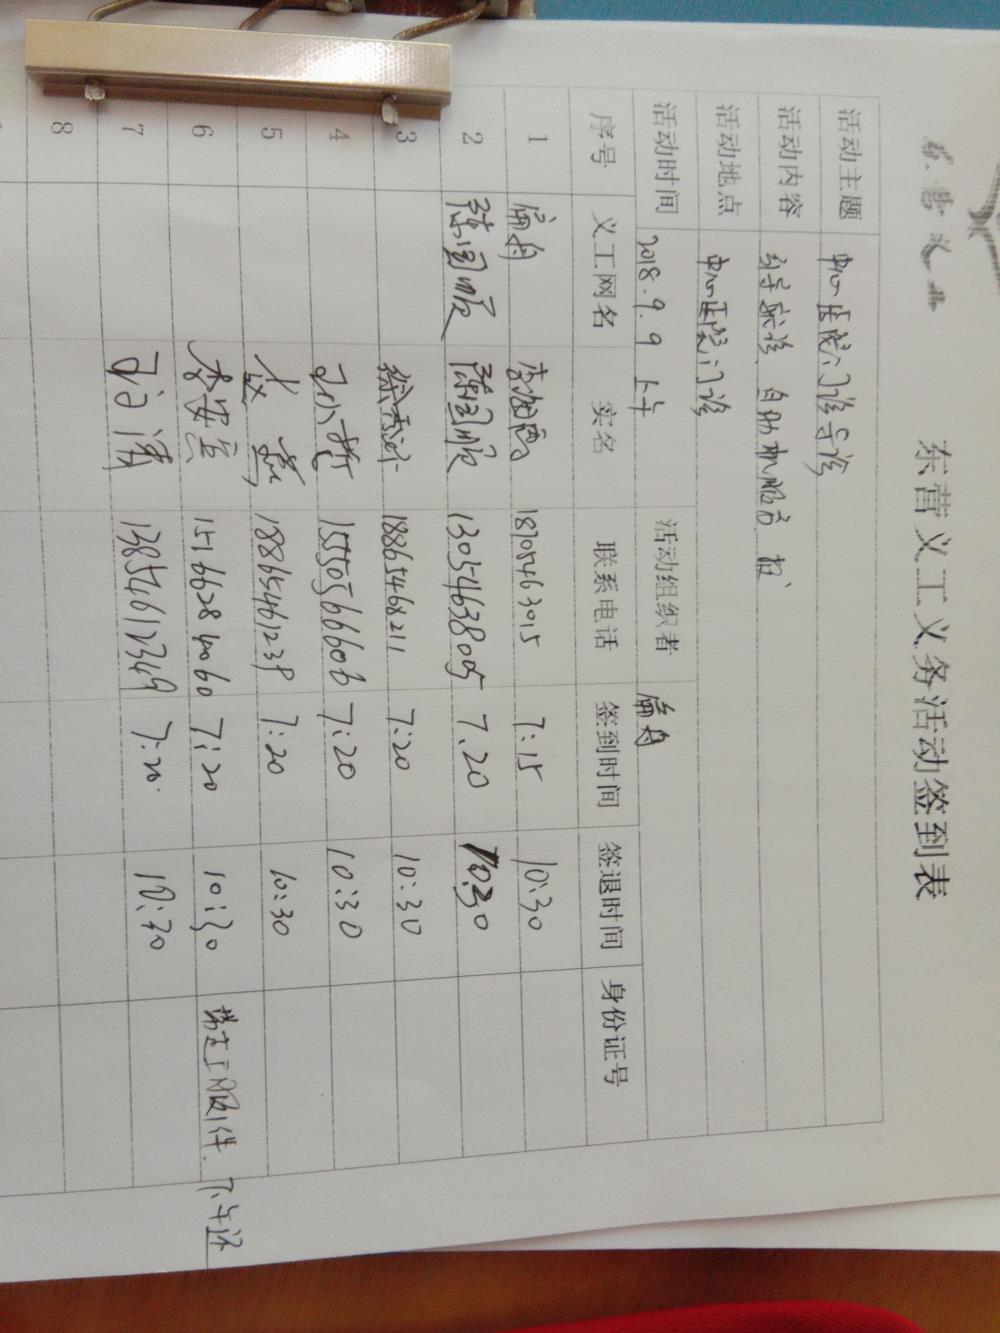 东营义工
东营义工义务活动签到表
活动主题 中心医院门诊导诊
活动内容 引导就诊、自助机服务
活动地点 中心医院门诊
活动时间 2018.9.9 上午 活动组织者 扁舟
序号 义工网名 实名 联系电话 签到时间 签退时间 身份证号
1 扁舟 18705463015 7:15 10:30
2 陈国顺 陈国顺 13054638005 7.20 10:30
3 18865468211 7:20 10:30
4 15550566606 7:20 10:30
5 18865461239 7:20 10:30
6 李安兵 15166284060 7:20 10:30 带走工服1件 下午还
7 13854612349 7:20 10:30
8